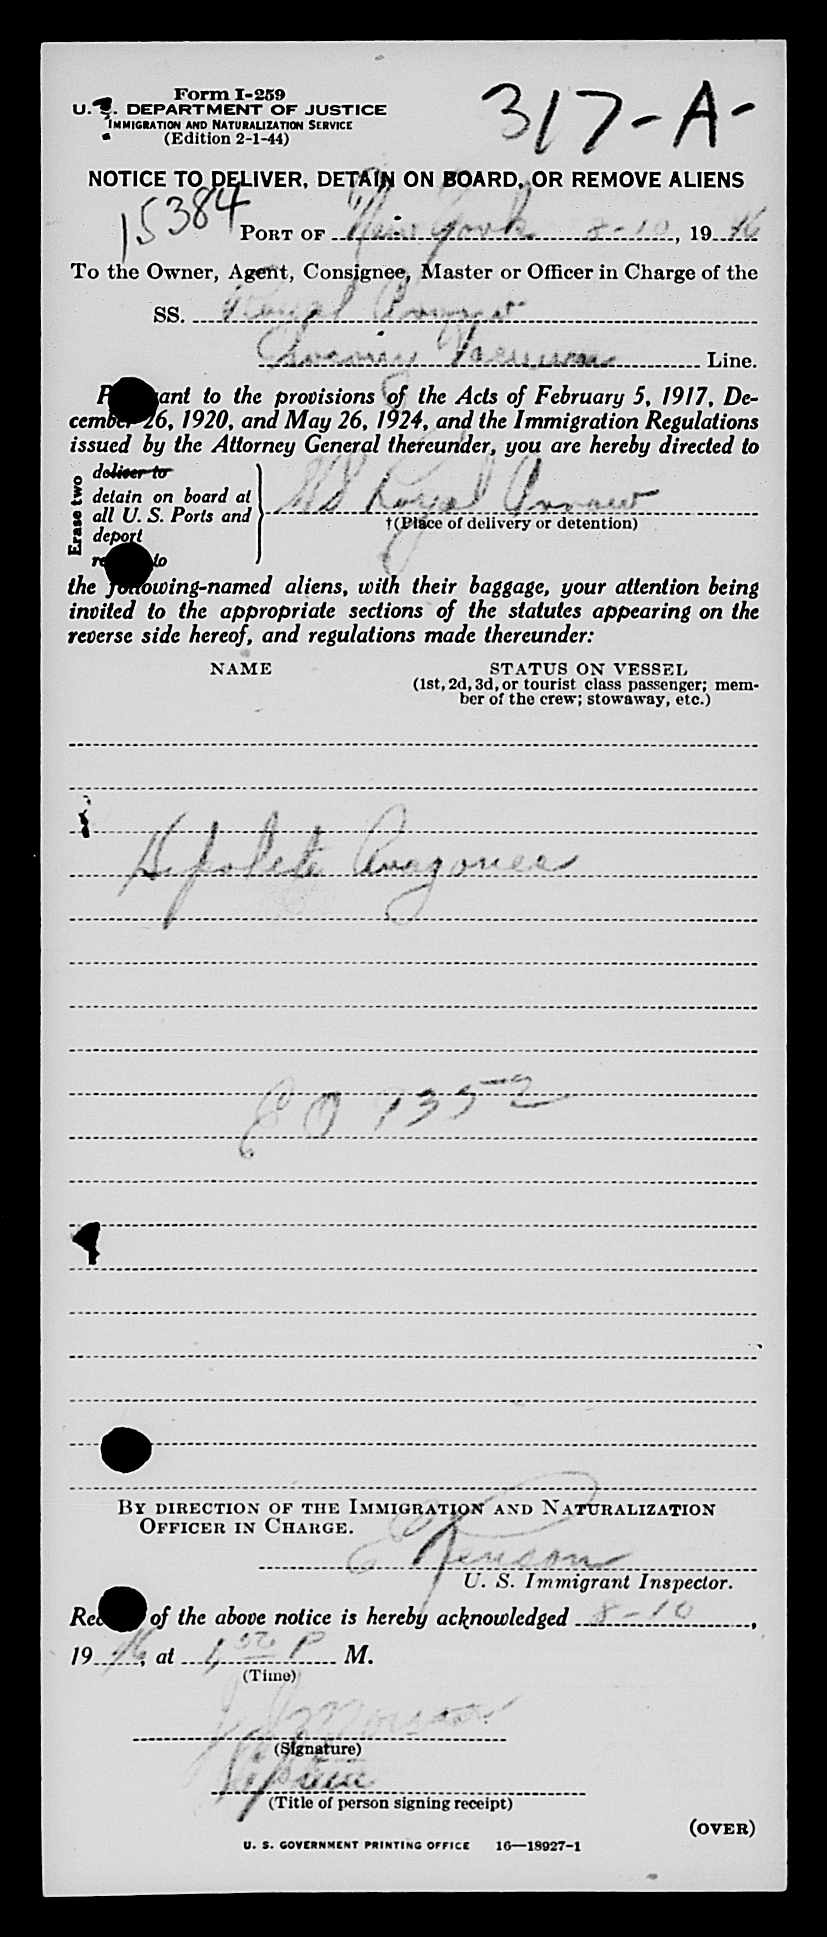 Form I-259
U. S. DEPARTMENT OF JUSTICE
IMMIGRATION AND NATURALIZATION SERVICE
(Edition 2-1-44)
317-A-
NOTICE TO DELIVER, DETAIN ON BOARD, OR REMOVE ALIENS
15384
PORT OF New York 8-10, 1946
To the Owner, Agent, Consignee, Master or Officer in Charge of the
SS. Royal Arrow
Socony Vacuum Line.
Pursuant to the provisions of the Acts of February 5, 1917, De-
cember 26, 1920, and May 26, 1924, and the Immigration Regulations
issued by the Attorney General thereunder, you are hereby directed to
Erase two
deliver to
detain on board at
all U. S. Ports and
deport
remove to
SS Royal Arrow
†(Place of delivery or detention)
the following-named aliens, with their baggage, your attention being
invited to the appropriate sections of the statutes appearing on the
reverse side hereof, and regulations made thereunder:
NAME
STATUS ON VESSEL
(1st, 2d, 3d, or tourist class passenger; mem-
ber of the crew; stowaway, etc.)
Hipolito Aragones
EO 9352
BY DIRECTION OF THE IMMIGRATION AND NATURALIZATION
OFFICER IN CHARGE.
U. S. Immigrant Inspector.
Receipt of the above notice is hereby acknowledged 8-10,
1946, at 1 50 P M.
(Time)
(Signature)
(Title of person signing receipt)
(OVER)
U. S. GOVERNMENT PRINTING OFFICE 16—18927-1